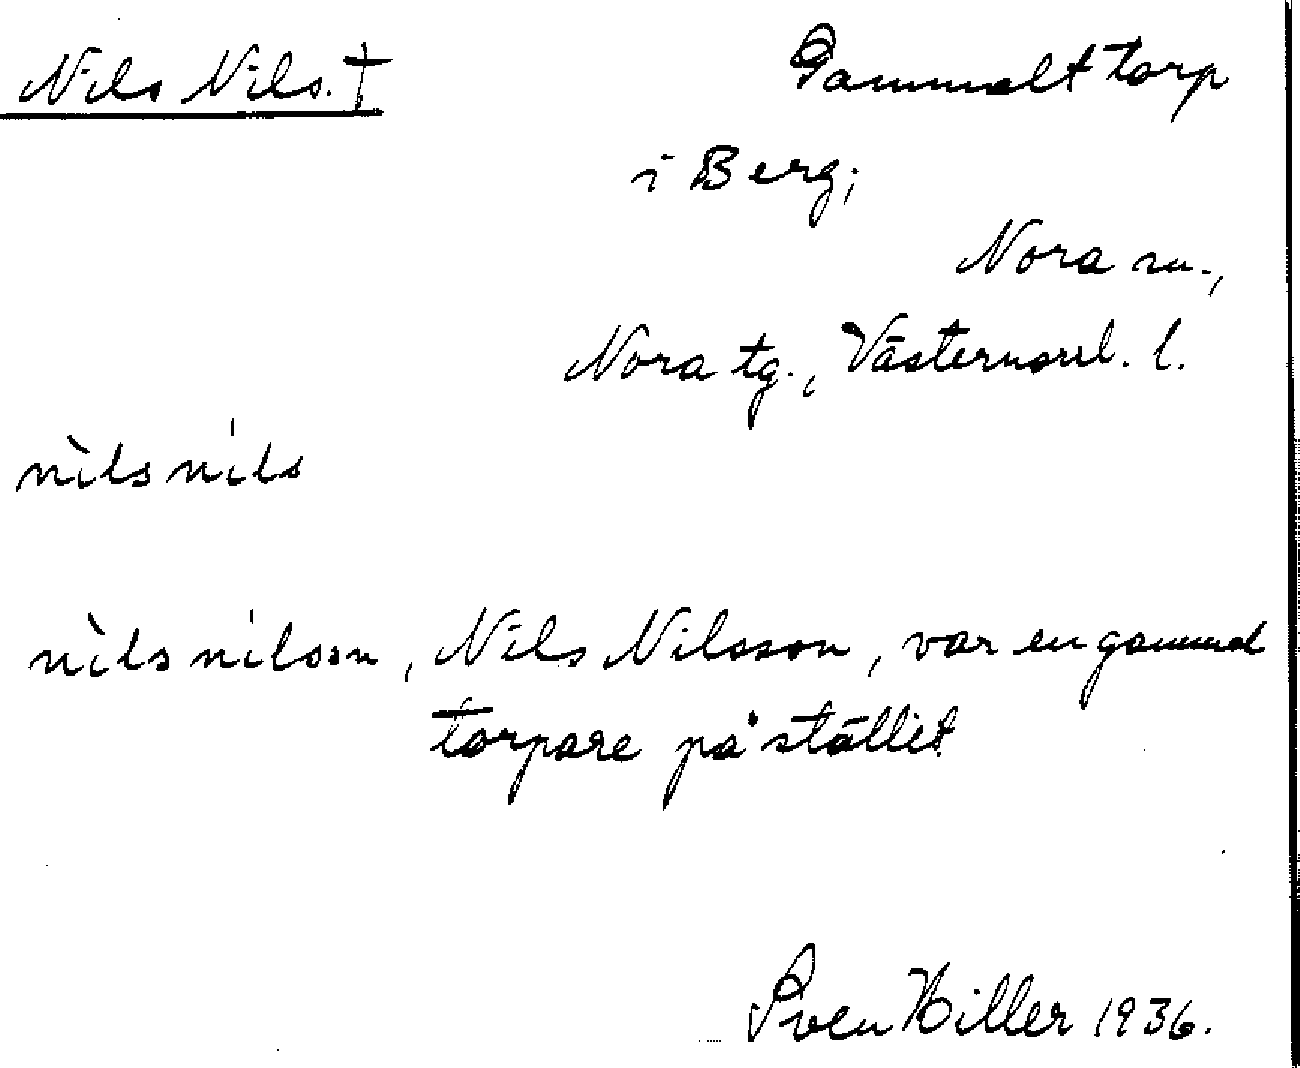 Nils Nils. †
Gammalt torp
i Berg;
Nora sn.,
Nora tg., Västernorrl. l.
nìls níls
nìls nílsson, Nils Nilsson, var en gammal
torpare på stället
Sven Hiller 1936.